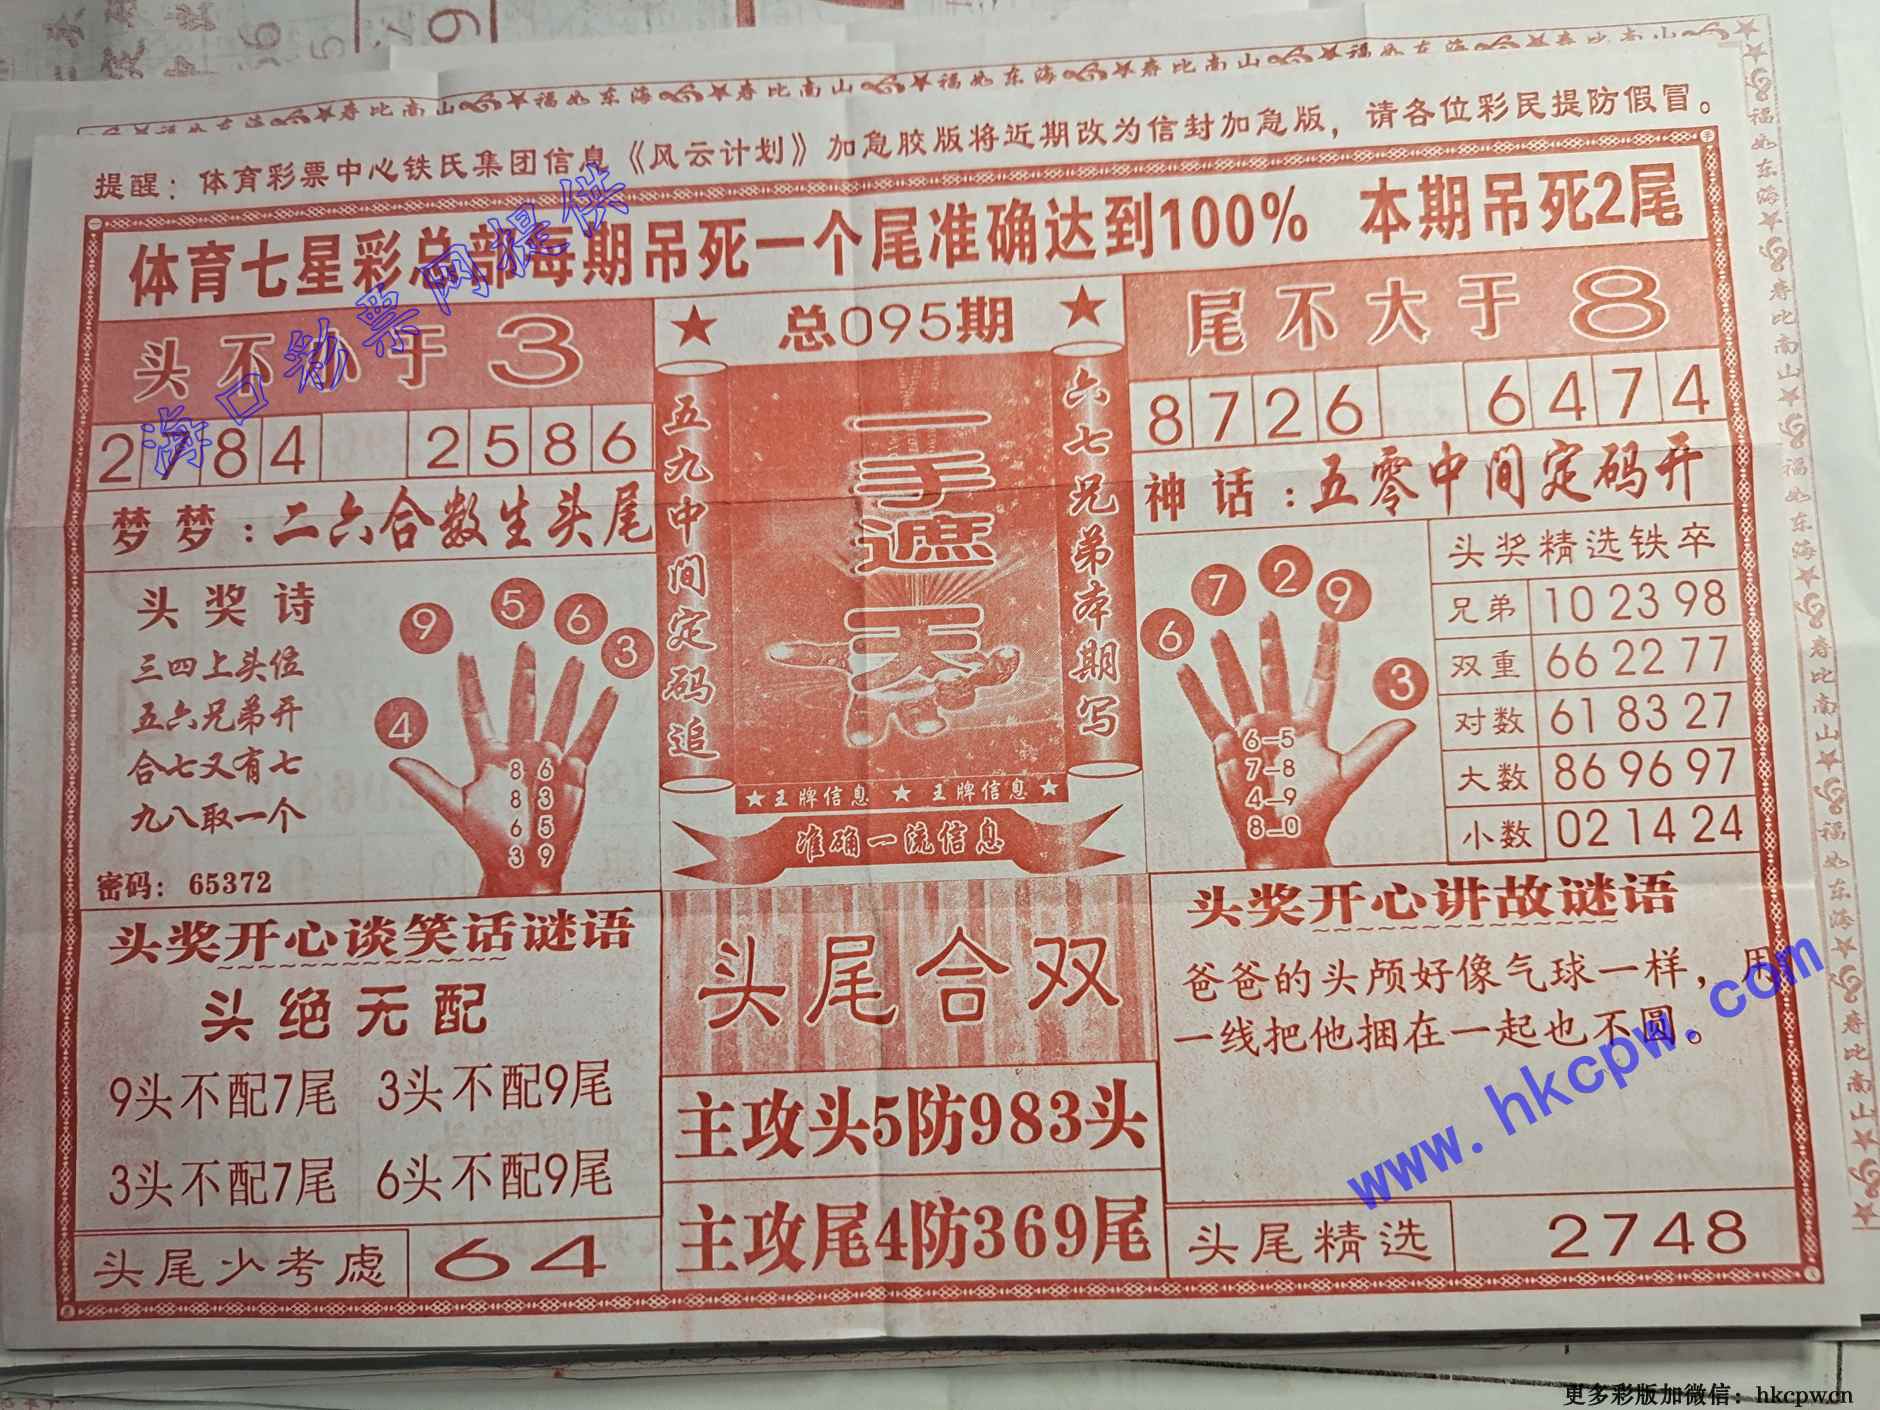 寿比南山 福如东海 寿比南山 福如东海 寿比南山 福如东海 寿比南山
提醒：体育彩票中心铁氏集团信息《风云计划》加急胶版将近期改为信封加急版，请各位彩民提防假冒。
体育七星彩总部每期吊死一个尾准确达到100% 本期吊死2尾
头不小于3
总095期
尾不大于8
2784 2586
8726 6474
梦梦：二六合数生头尾
神话：五零中间定码开
五九中间定码追
一手遮天
六七兄弟本期写
王牌信息 王牌信息
准确一流信息
头奖诗
三四上头位
五六兄弟开
合七又有七
九八取一个
密码：65372
4 9 5 6 3
8 6
8 3
6 5
3 9
6 7 2 9 3
6—5
7—8
4—9
8—0
头奖精选铁卒
兄弟 10 23 98
双重 66 22 77
对数 61 83 27
大数 86 96 97
小数 02 14 24
头奖开心谈笑话谜语
头绝无配
9头不配7尾 3头不配9尾
3头不配7尾 6头不配9尾
头尾少考虑 64
头尾合双
主攻头5防983头
主攻尾4防369尾
头奖开心讲故谜语
爸爸的头颅好像气球一样，用
一线把他捆在一起也不圆。
头尾精选 2748
福如东海 寿比南山 福如东海 寿比南山 福如东海 寿比南山
海口彩票网提供
www.hkcpw.com
更多彩版加微信：hkcpwcn